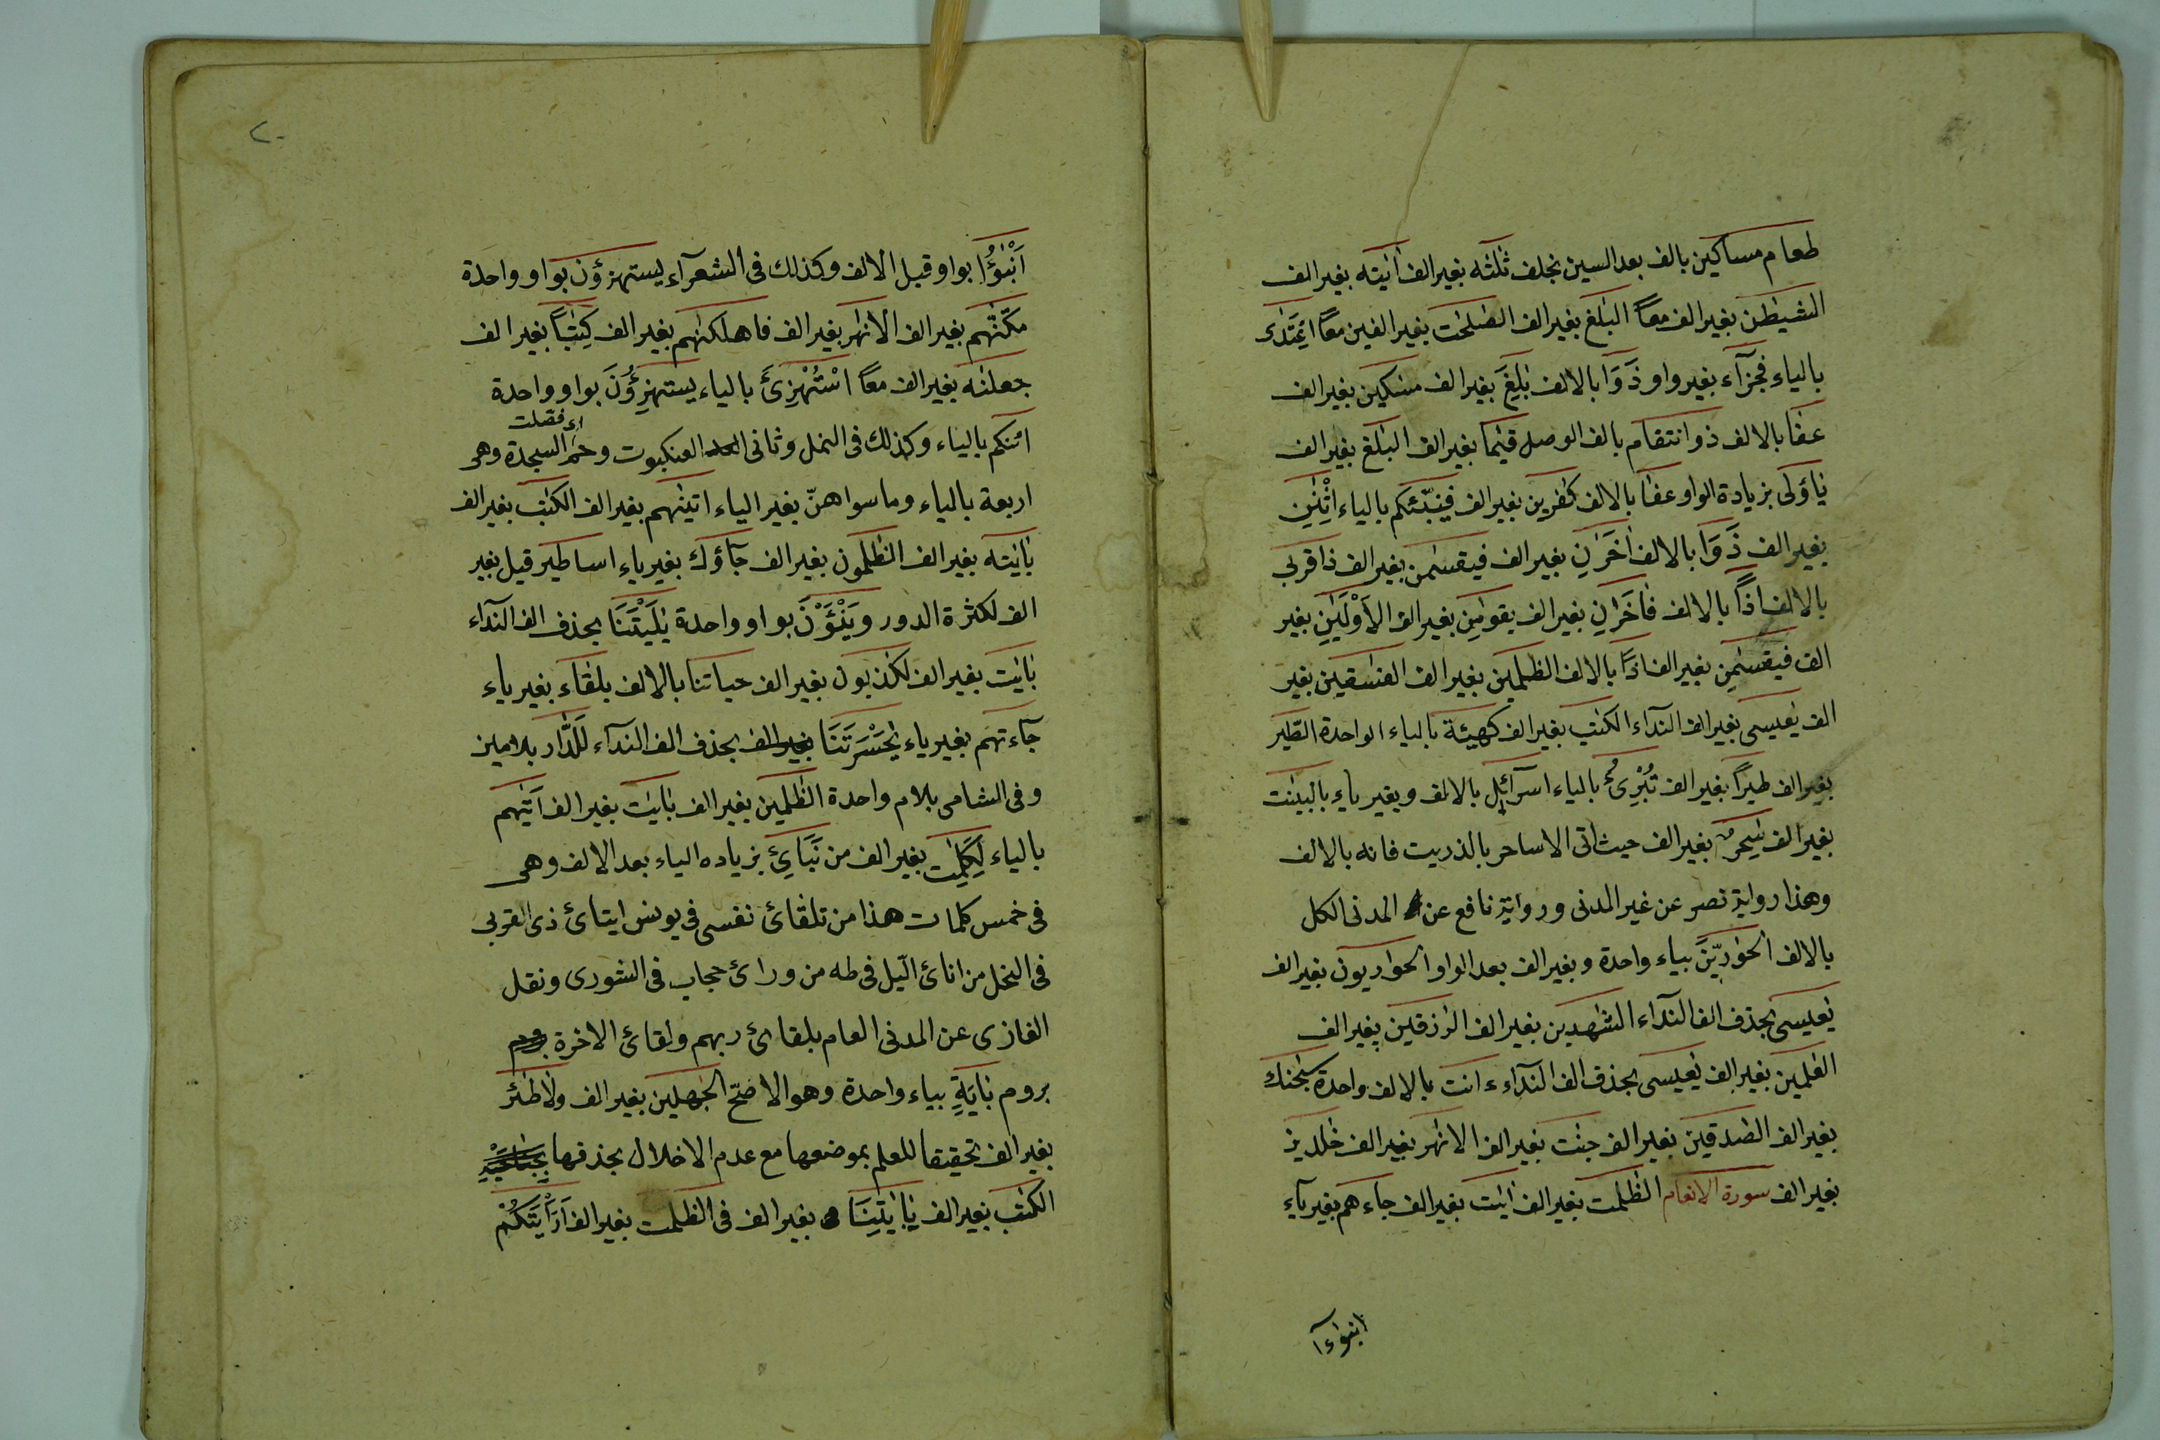 طعام مساكين بالف بعد السين بخلف ثلثه بغير الف اٰيٰته بغير الف
الشيطٰن بغير الف معًا البلٰغ بغير الف الصٰلحٰت بغير الفين معًا اعْتَدٰى
بالياء فجزآء بغير واو ذَوَا بالالف بٰلِغَ بغير الف مسٰكين بغير الف
عفا بالالف ذو انتقام بالف الوصل قيٰما بغير الف البلٰغ بغير الف
يٰاُولى بزيادة الواو عفا بالالف كٰفرين بغير الف فينبّئكم بالياء اثْنٰنِ
بغير الف ذَوَا بالالف اٰخَرٰانِ بغير الف فيقسمٰن بغير الف ذا قربى
بالالف اذًا بالالف فاٰخَرٰنِ بغير الف يقومٰنِ بغير الف الاَوْلَيٰنِ بغير
الف فيقسمٰنِ بغير الف اذًا بالالف الظٰلمين بغير الف الفٰسقين بغير
الف يٰعيسى بغير الف النداء الكتٰب بغير الف كهيئة بالياء الواحدة الطّير
بغير الف طيرًا بغير الف تُبْرِئُ بالياء اسرآئل بالالف وبغير ياء بالبينٰت
بغير الف سٰحر بغير الف حيث اتى الا ساحر بالذريت فانه بالالف
وهذا رواية نصر عن غير المدنى ورواية نافع عن المدنى الكل
بالالف الحوٰارِيّنَ بياء واحدة وبغير الف بعد الواو الحواريون بغير الف
يٰعيسى بحذف الف النداء الشٰهدين بغير الف الرٰزقين بغير الف
العٰلمين بغير الف يٰعيسى بحذف الف النداء ءانت بالالف واحدة سبحٰنك
بغير الف الصٰدقين بغير الف جنٰت بغير الف الانهٰر بغير الف خٰلدين
بغير الف سورة الانعام الظلمٰت بغير الف اٰيٰت بغير الف جاءهم بغير ياء
انبٰؤا
٢٠
اَنْبٰؤُا بواو قبل الالف وكذلك فى الشعرآء يستهزؤن بواو واحدة
مكّنّٰهم بغير الف الانهٰر بغير الف فاهلكنٰهم بغير الف كِتٰبًا بغير الف
جعلنٰه بغير الف معًا اسْتُهْزِئَ بالياء يستهزِؤُنَ بواو واحدة
اى فصلت
ائنكم بالياء وكذلك فى النمل وثانى العنكبوت وحم السجدة وهى
اربعة بالياء وما سواهنّ بغير الياء اتينٰهم بغير الف الكتٰب بغير الف
بٰايٰته بغير الف الظٰلمون بغير الف جآؤك بغير ياء اساطير قيل بغير
الف لكثرة الدور وَيَنْئَوْنَ بواو واحدة يٰلَيْتَنَا بحذف الف النداء
بٰايٰت بغير الف لكٰذبون بغير الف حياتنا بالالف بلقاء بغير ياء
جآءتهم بغير ياء يٰحَسْرَتَنَا بحذف الف النداء لَلدَّار بلامين
وفى الشامى بلام واحدة الظٰلمين بغير الف بٰايٰت بغير الف اَتٰيهم
بالياء لِكَلِمٰتِ بغير الف من نَبَاىِٕ بزيادة الياء بعد الالف وهى
فى خمس كلمات هذا من تلقائ نفسى فى يونس ايتائ ذى القربى
فى النحل من انائ الّيل فى طه من ورائ حجاب فى الشورى ونقل
الغازى عن المدنى العام بلقائ ربهم ولقائ الاخرة
بروم بٰايَةٍ بياء واحدة وهو الاصحّ الجٰهلين بغير الف ولا طٰئر
بغير الف تحقيقا للعلم بموضعها مع عدم الاخلال بحذفها
الكتٰب بغير الف بٰايٰتِنَا بغير الف فى الظلمٰت بغير الف اَرَاَيْتَكُمْ